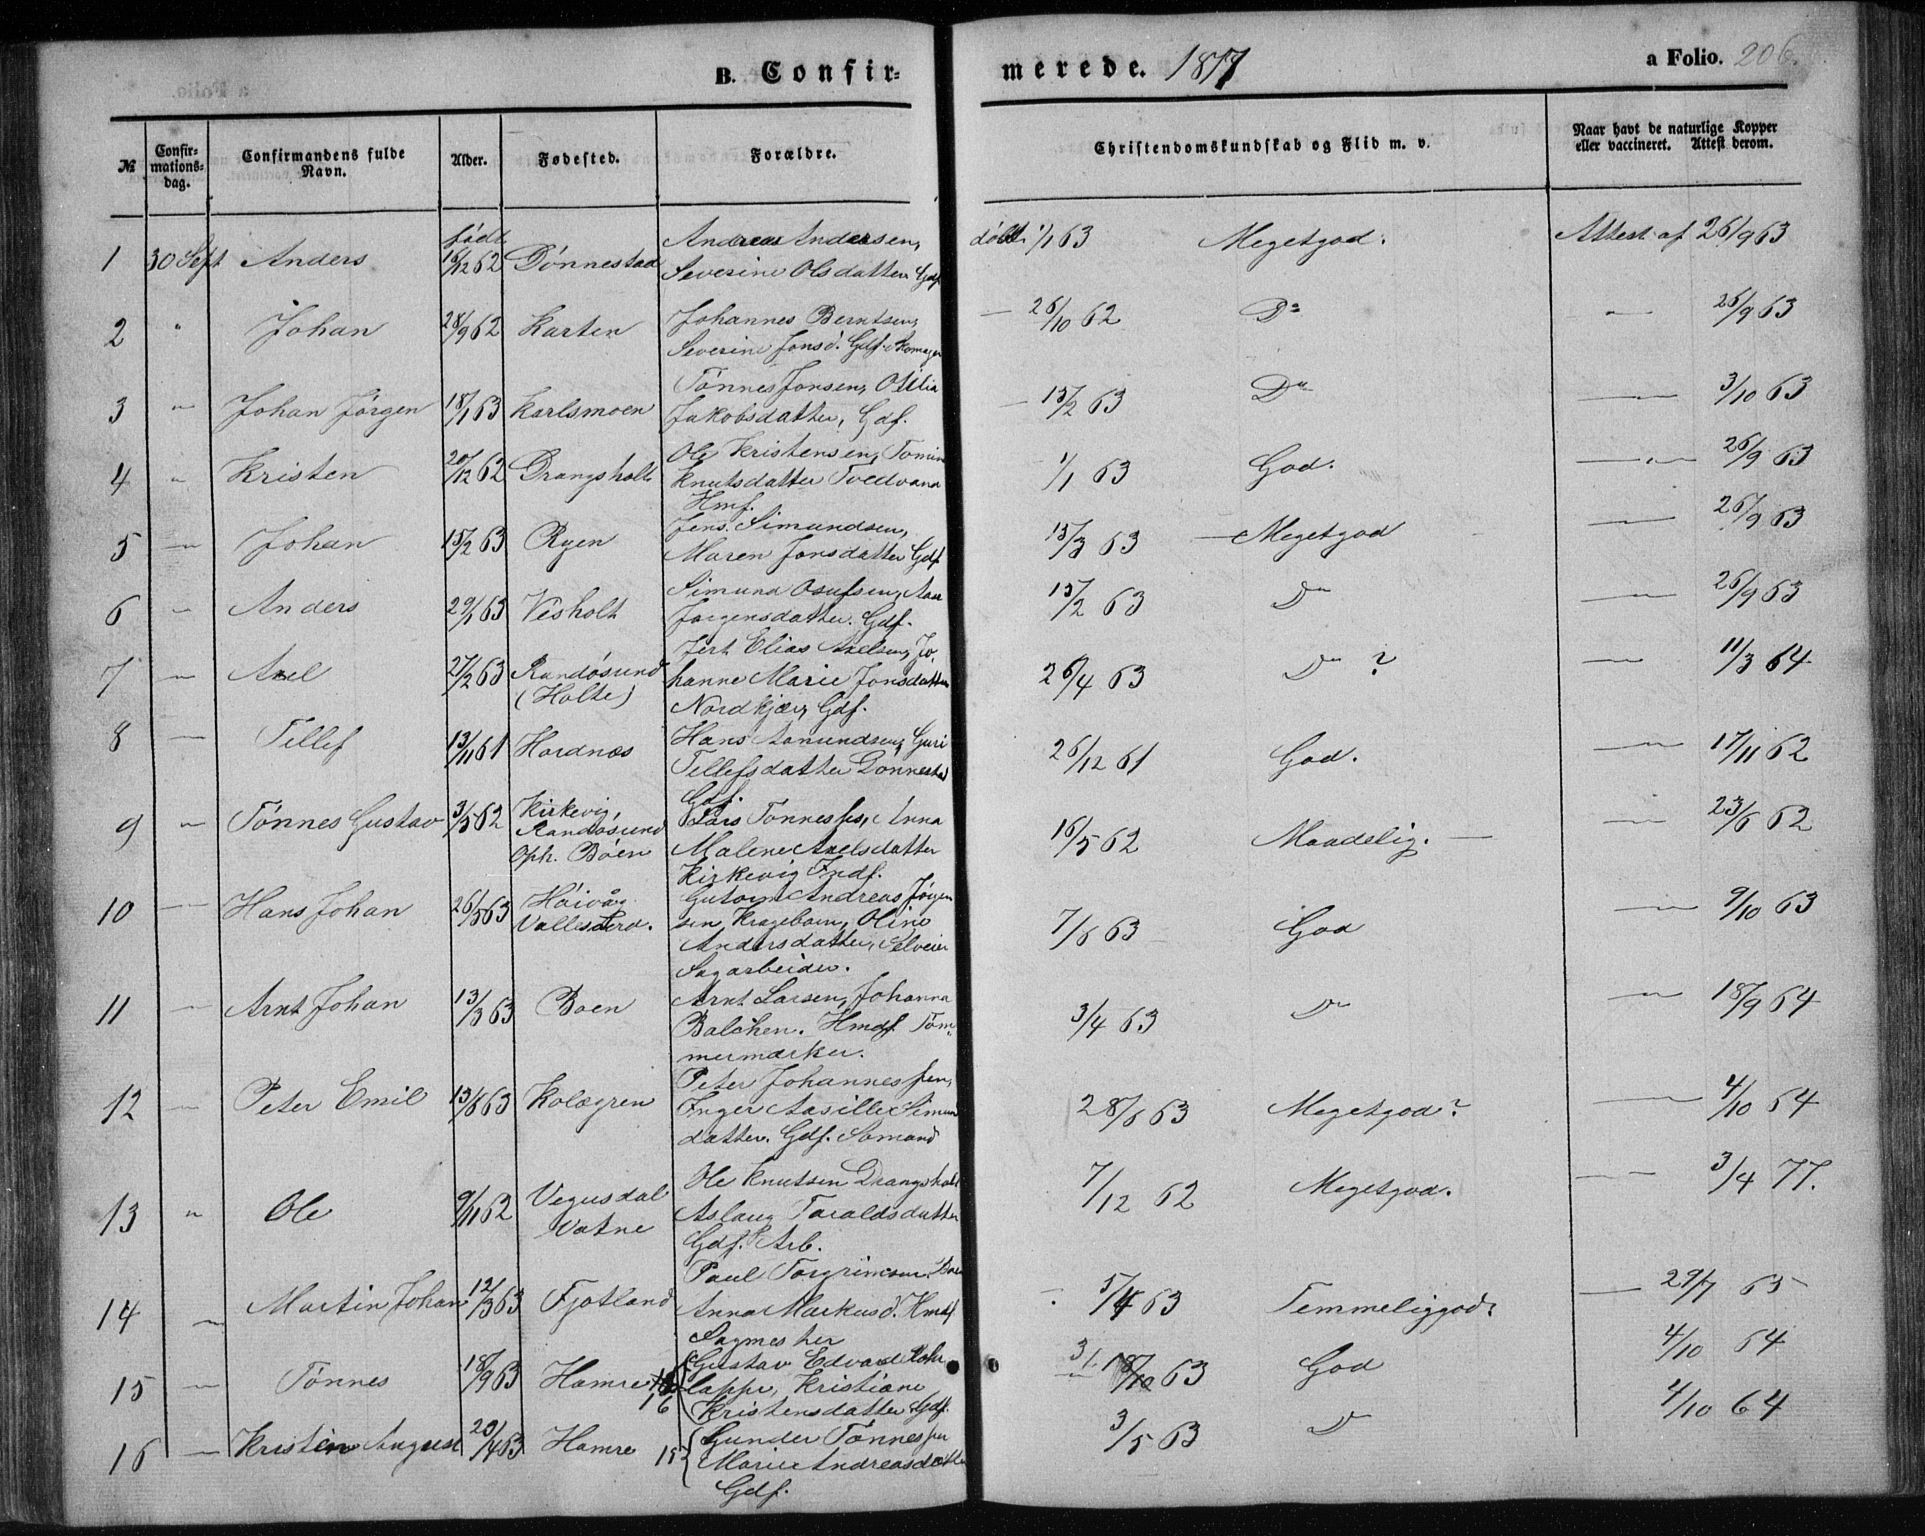 B. Confir-
merede. 1877
a Folio. 206.
№
Confir-
mations-
dag.
Confirmandens fulde
Navn.
Alder.
Fødested.
Forældre.
Christendomskundskab og Flid m. v.
Naar havt de naturlige Kopper
eller vaccineret. Attest derom.
1 30 Sept Anders født 16/12 62 Dønnestad
Andreas Andersen,
Severine Olsdatter Gdf
døbt 1/1 63 Megetgod. Attest af 26/9 63
2 " Johan 28/9 62 Karten
Johannes Berntsen,
Severine Jonsd. Gdf. Skomager
— 26/10 62 Do — 26/9 63
3 " Johan Jörgen 18/1 63 Karlsmoen
Tönnes Jonsen, Otilia
Jakobsdatter, Gdf.
— 15/2 63 Do — 3/10 63
4 " Kristen 20/12 62 Drangsholt
Ole Kristensen, Tomine
Knutsdatter Tvedvana
Hmf.
1/1 63 God. —"— 26/9 63
5 — Johan 15/2 63 Ryen
Jens Simundsen,
Maren Jonsdatter Gdf
15/3 63 — Megetgod — 26/9 63
6 " Anders 29/1 63 Vesholt
Simund Osufsen, Aase
Jørgensdatter. Gdf.
15/2 63 Do — 26/9 63
7 — Axel 27/2 63 Randøsund
(Holte)
Jert Elias Axelsen, Jo-
hanne Marie Jonsdatter
Nordkjær, Gdf.
26/4 63 Do ? — 11/3 64
8 — Tellef 13/11 61 Hordnæs
Hans Aamundsen, Guri
Tellefsdatter Dønnestad
Gdf.
26/12 61 God. —"— 17/11 62
9 " Tönnes Gustav 3/5 62 Kirkevig,
Randøsund
Oph. Böen
Lars Tönnessen, Anna
Malene Axelsdatter
Kirkevig Indf.
16/5 62 Maadelig. — —"— 23/6 62
10 — Hans Johan 26/5 63 Höivåg
Vallesverd.
Gutorm Andreas Jörgen
sen Kragebom, Oline
Andersdatter, Selveier
Sagarbeider.
7/6 63 God —"— 9/10 63
11 — Arnt Johan 13/3 63 Boen
Arnt Larsen, Johanna
Balchen. Hmdf. Töm-
mermærker.
3/4 63 Do —"— 18/9 64
12 — Peter Emil 13/6 63 Kolægren
Peter Johannessen,
Inger Aasille Simun
datter. Gdf. Sömand
28/6 63 Megetgod? — 4/10 64
13 " Ole 9/11 62 Vegusdal
Vatne
Ole Knutsen Drangsholt
Aslaug Taraldsdatter
Gdf. Arb.
7/12 62 Megetgod. — 3/4 77.
14 " Martin Johan 12/3 63 Fjotland
Paul Torgrimsen Boen
Anna Markusd. Hmdf
Sagmester
5/4 63 Temmeliggod? — 29/7 65
15 — Tönnes 18/9 63 Hamre 16
Gustav Edvard Rohr
lapper, Kristiane
Kristensdatter Gdf.
18/10 63 God 4/10 64
16 — Kristen August 20/4 63 Hamre 15
Gunder Tönnessen
Marie Andreasdatter
Gdf.
3/5 63 D 4/10 64